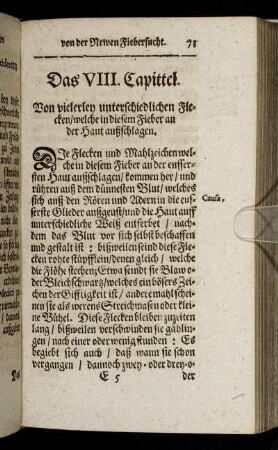 von der Newen Fiebersucht. 71
Das VIII. Capittel.
Von vielerley unterschiedlichen Fle-
cken/welche in diesem Fieber an
der Haut außschlagen.
DIe Flecken und Mahlzeichen wel-
che in diesem Fieber an der eusser-
sten Haut außschlagen/ kommen her/ und
rühren auß dem dünnesten Blut/ welches
sich auß den Rören und Adern in die eus-
serste Glieder außgeust/ und die Haut auff
unterschiedliche Weiß entferbet / nach-
dem das Blut vor sich selbst beschaffen
und gestalt ist : bißweilen seind diese Fle-
cken rohte stüpfflein/ denen gleich / welche
die Flöhe stechen; Etwa seindt sie Blaw o-
der Bleichschwarz/ welches ein böses Zei-
chen der Gifftigkeit ist / anderemahl schei-
nen sie als werens Streichmasen oder klei-
ne Bühel. Diese Flecken bleiben zuzeiten
lang / bißweilen verschwinden sie gählin-
gen / nach einer oder wenig stunden : Es
begiebt sich auch / daß wann sie schon
vergangen / dannoch zwey- oder drey-o-
E 5 der
Causa,